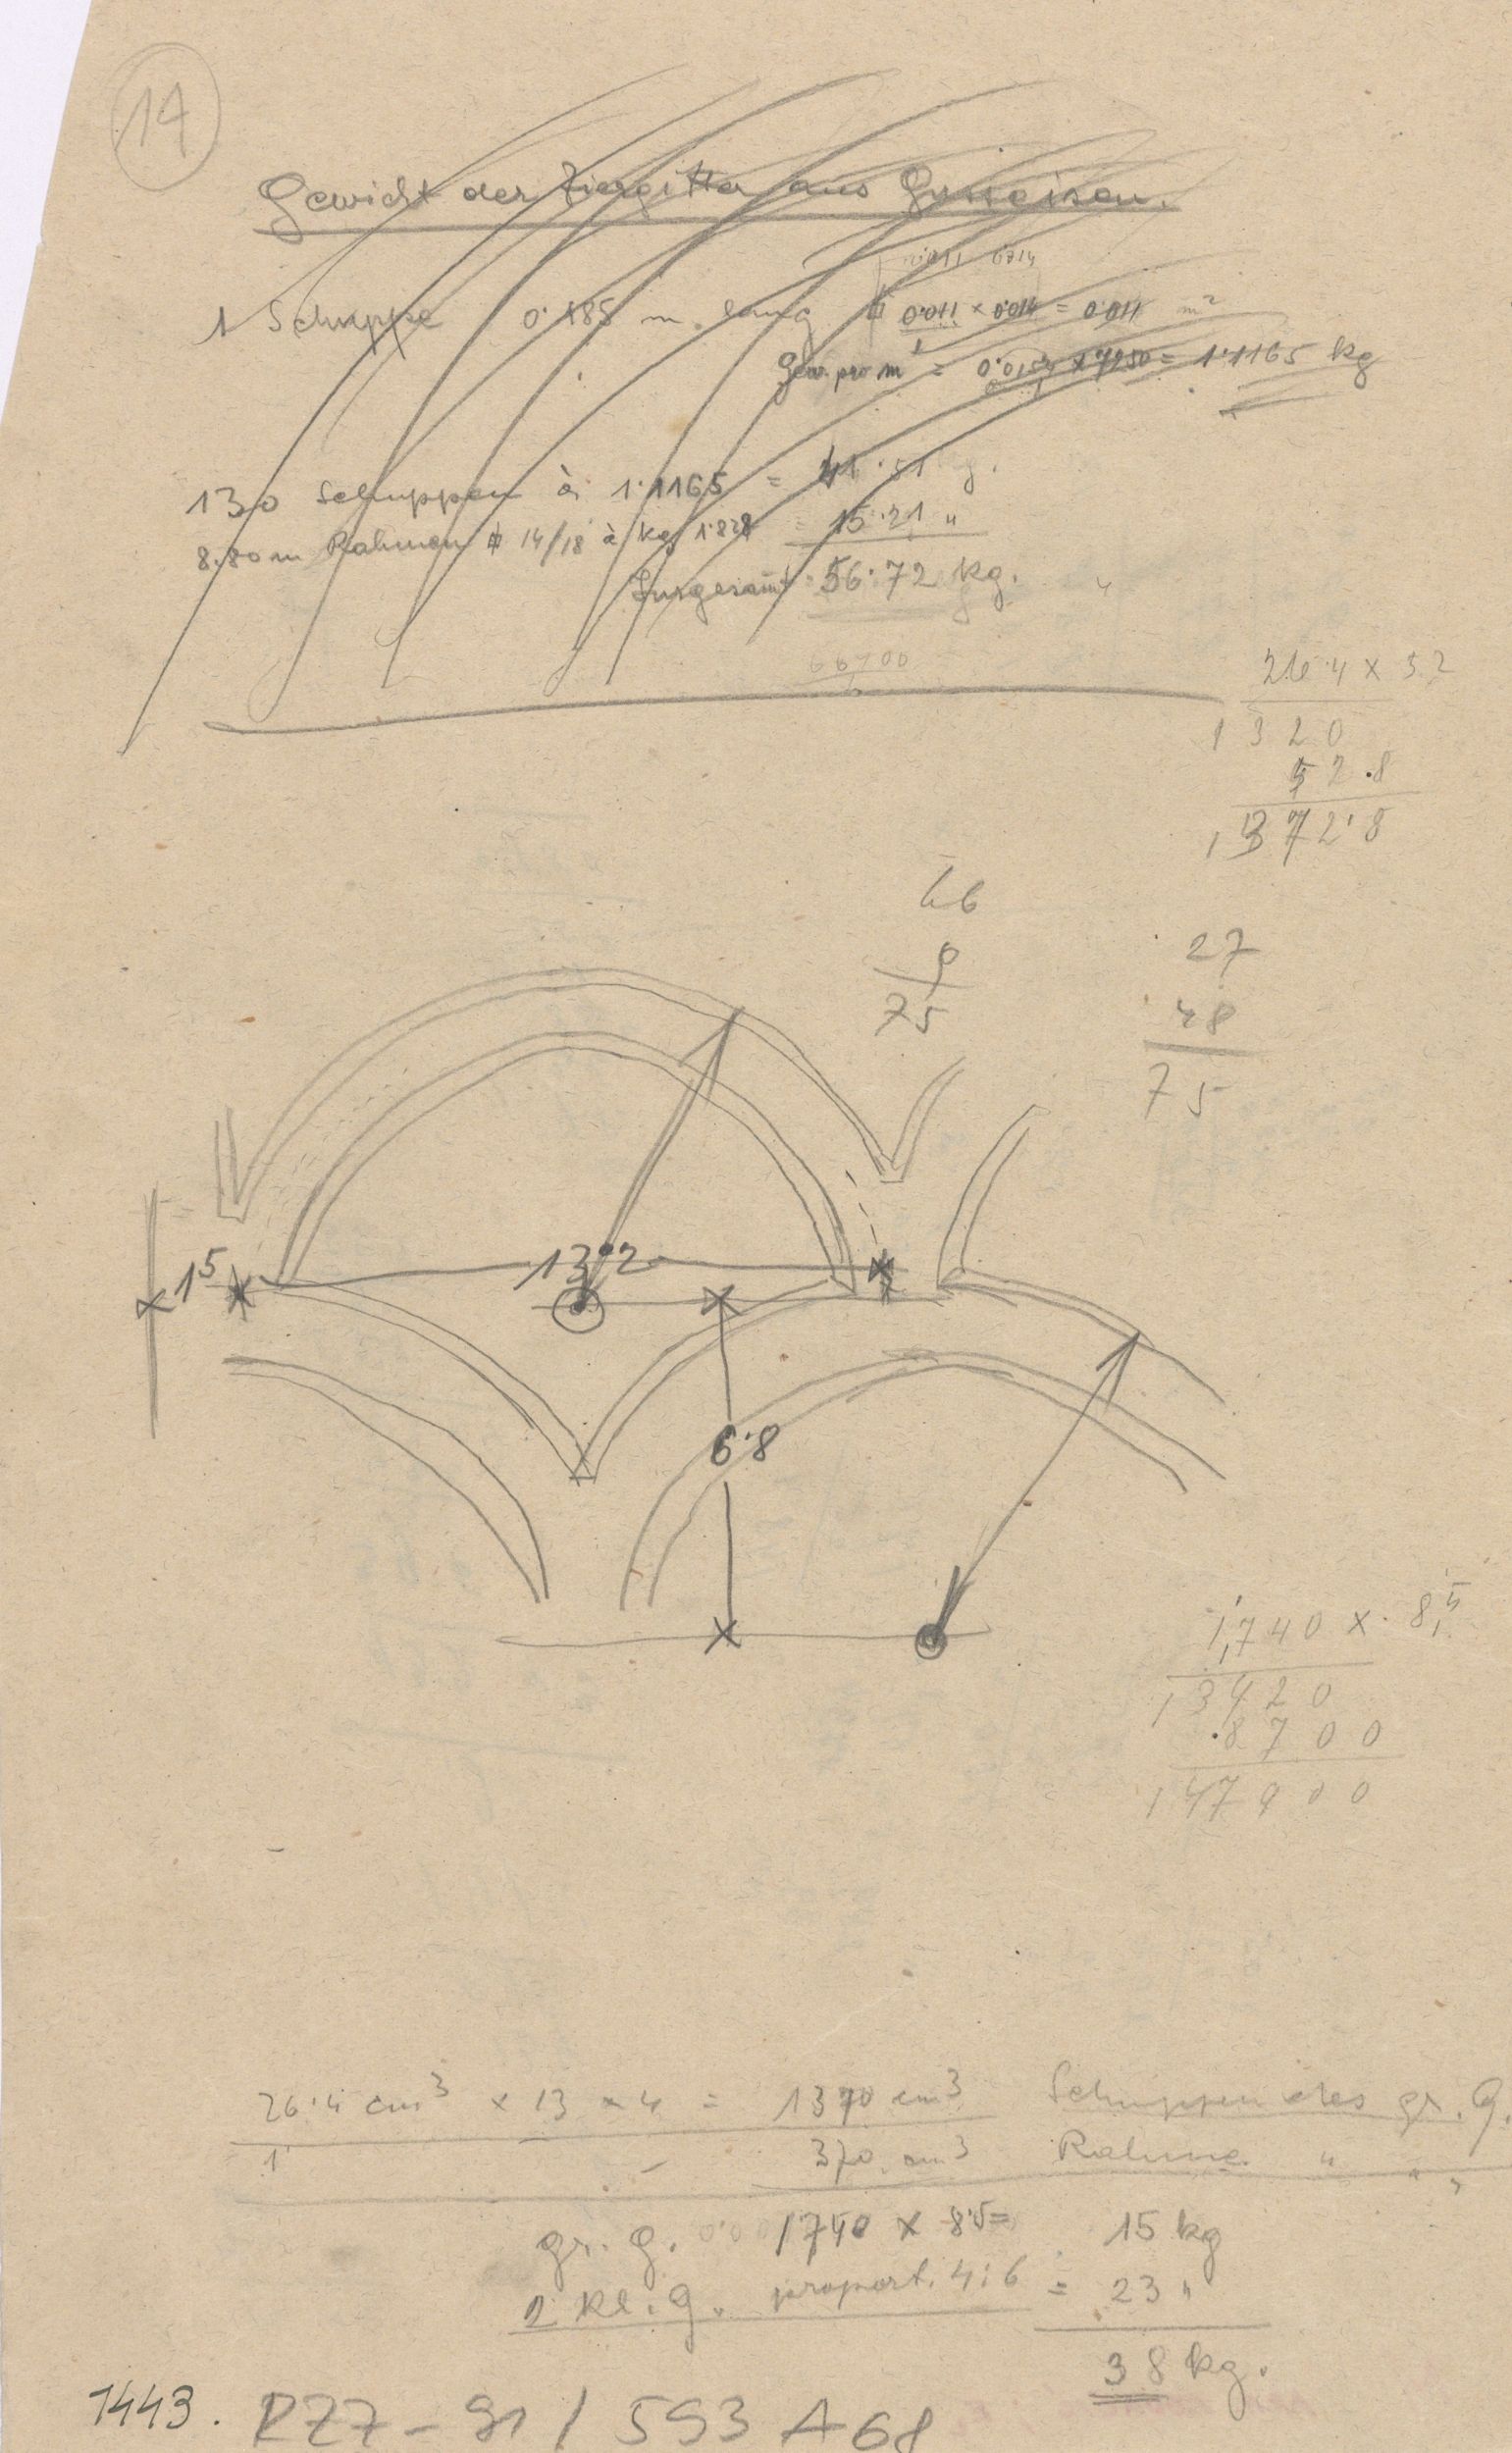 14
Gewicht der Ziergitter aus Gusseisen.
1 Schuppe 0.185 m lang 0.011 × 0.014 = 0.011 m²
Gew. pro m = × 7250 = 1.1165 kg
130 Schuppen à 1.1165 = 41.51 g.
8.80 m Rahmen 14/18 à kg 1.828 = 15.21 "
Insgesamt 56.72 kg.
66700
26.4 × 52
1320
52.8
1372.8
66
9
75
27
48
75
1⁵
13.2
6.8
1,740 × 8,5
13920
.8700
147900
26.4 cm³ × 13 × 4 = 1370 cm³ Schuppen des gr. G.
1 - 370 cm³ Rahme " " "
gr. G. 1740 × 8.5 = 15 kg
2 kl. G. proport. 4:6 = 23 "
38 kg.
1443. RZ7 - 91 / 593 A 68